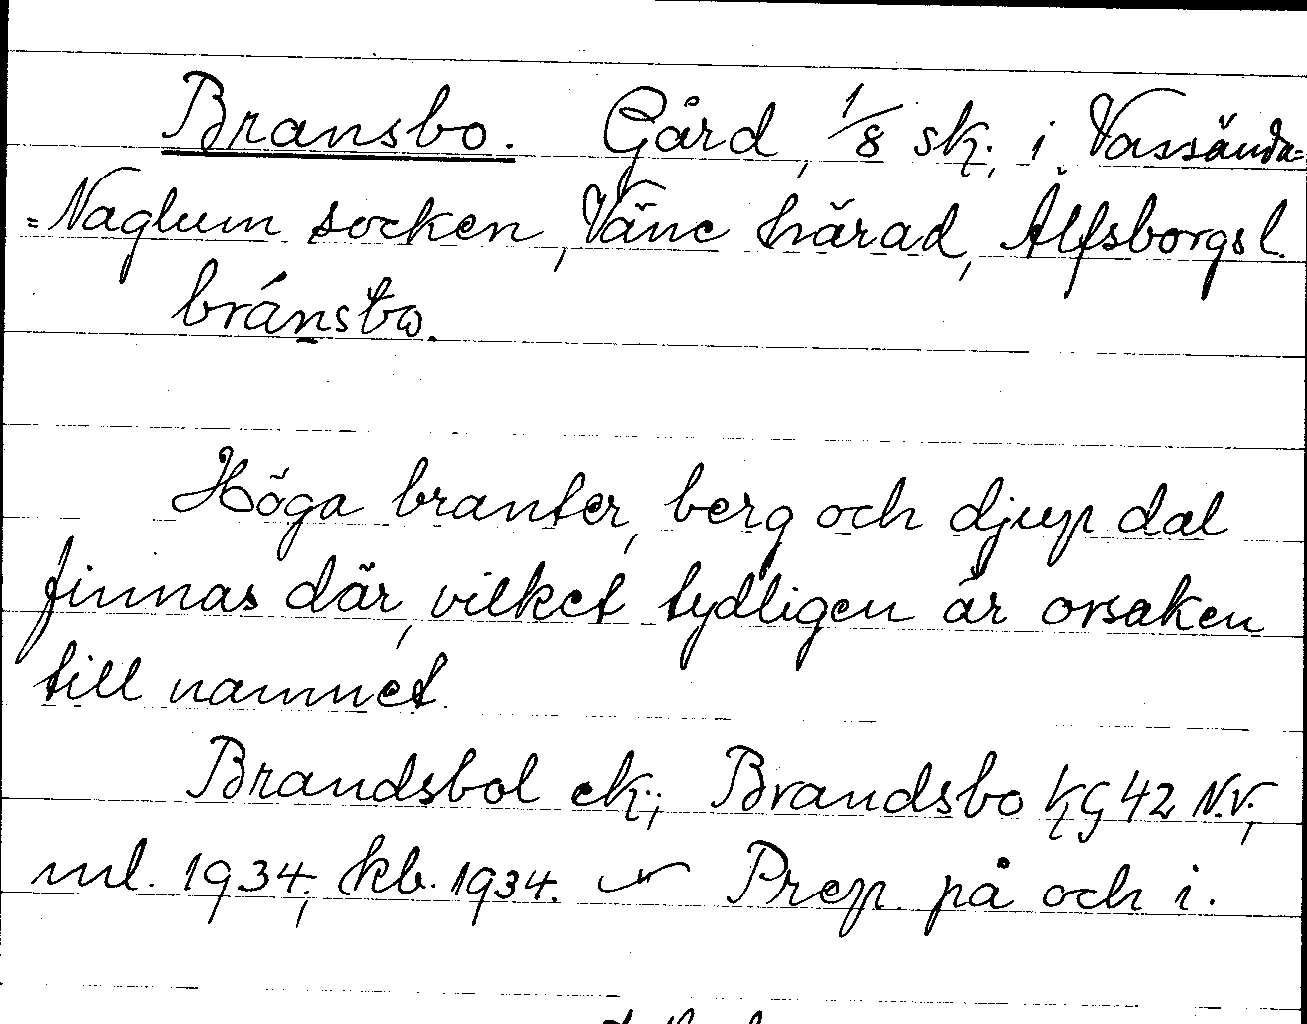 Bransbo. Gård, 1/8 sk., i Vassända=
=Naglum socken, Väne härad, Älfsborgs l.
bránsbω.
Höga branter, berg och djup dal
finnas där, vilket tydligen är orsaken
till namnet.
Brandsbol ek.; Brandsbo KG 42 N.V.;
ml. 1934; kb. 1934. ~ Prep. på och i.